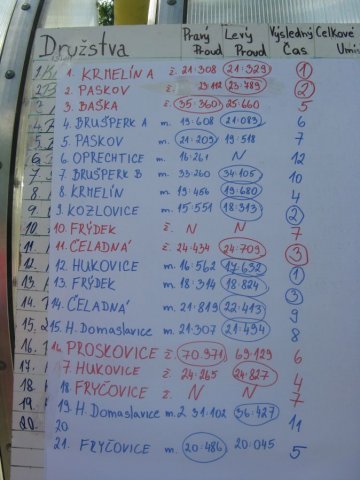 Družstva Pravý Proud Levý Proud Výsledný Čas Celkové Umís
1. KRMELÍN A ž. 21:308 21:329 1
2. PASKOV ž. 23:112 23:789 2
3. BAŠKA ž. 35:360 25:660 5
4. BRUŠPERK A m. 19:608 21:083 6
5. PASKOV m. 21:209 19:518 7
6. OPRECHTICE m. 16:261 N 12
7. BRUŠPERK B m. 33:260 34:105 10
8. KRMELÍN m. 19:456 19:680 4
9. KOZLOVICE m. 15:551 18:313 2
10. FRÝDEK ž. N N 7
11. ČELADNÁ ž. 24:434 24:709 3
12. HUKOVICE m. 16:562 17:632 1
13. FRÝDEK m. 18:314 18:824 3
14. ČELADNÁ m. 21:819 22:413 9
15. H. Domaslavice m. 21:307 21:494 8
16. PROSKOVICE ž 70.971 69:129 6
17. HUKOVICE ž. 24:265 24:827 4
18. FRYČOVICE ž. N N 7
19. H. Domaslavice m. 2 31:102 36:427 11
20
21. FRYČOVICE m. 20:486 20:045 5